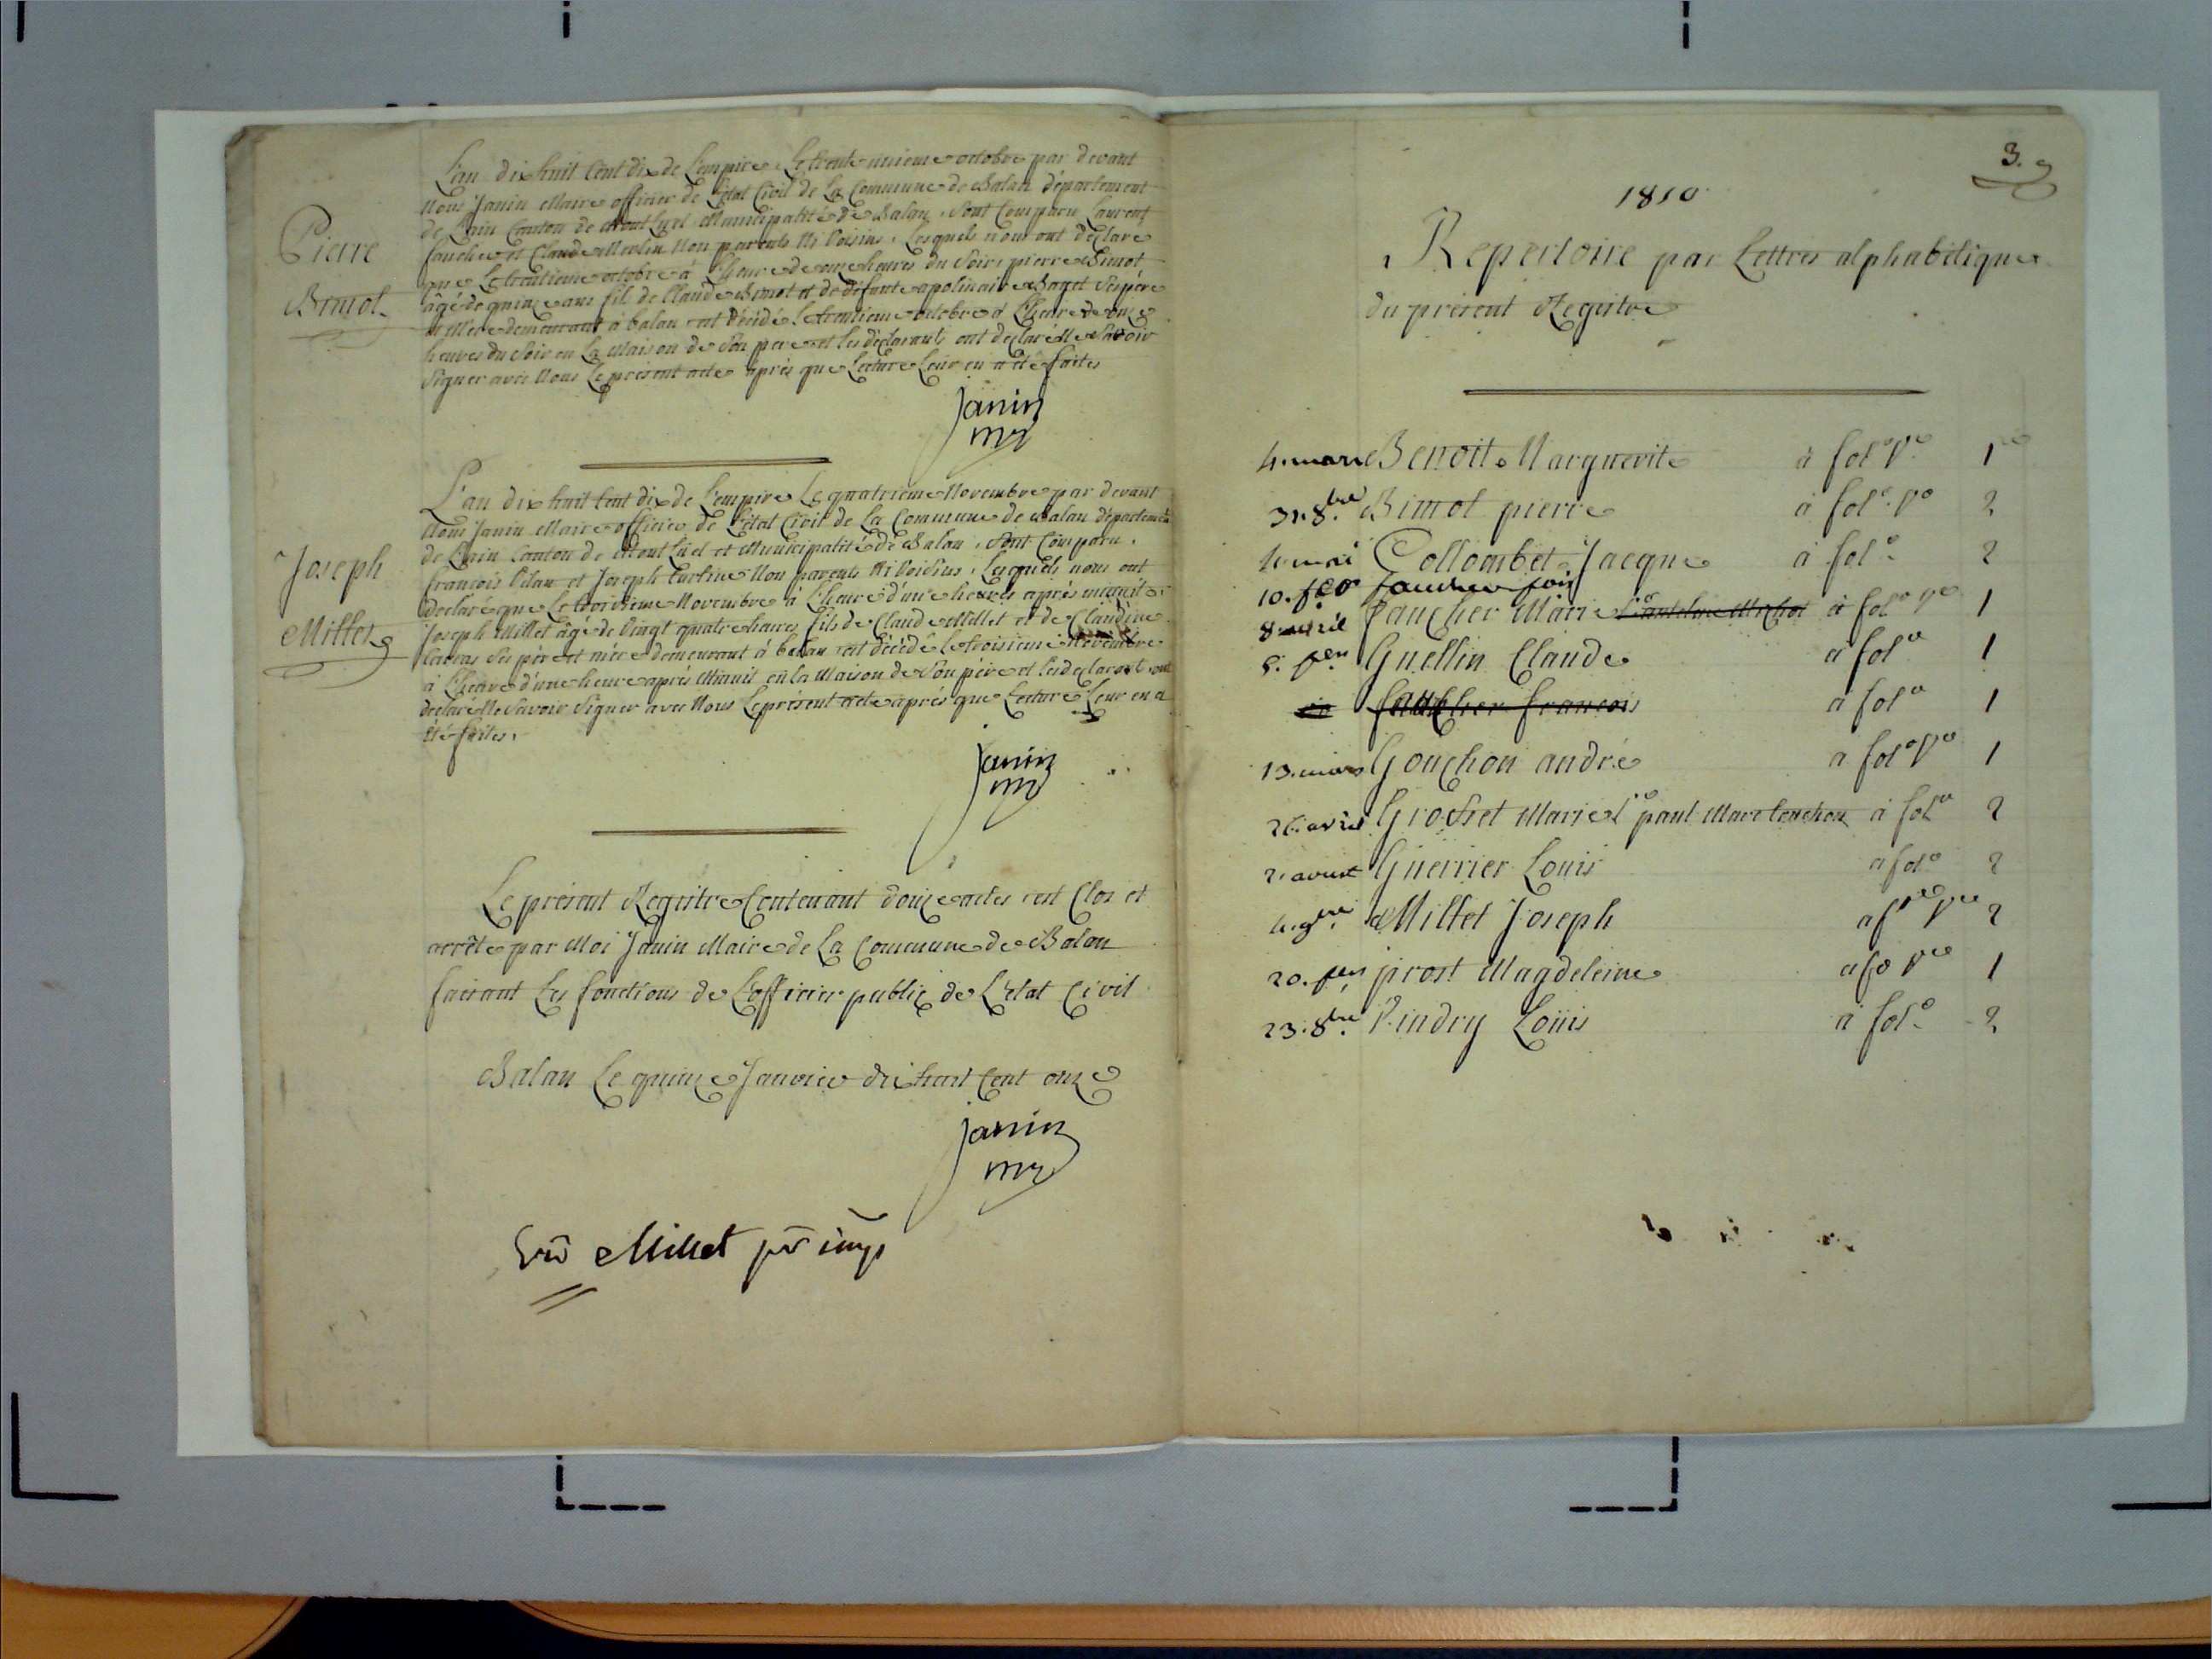 Pierre
Bimot
L'an dix huit Cent dix de L'empire Le trente unieme octobre par devant
Nous Janin Maire officier de L'état Civil de La Commune de Balan département
de L'ain Canton de Mont Luel Municipalité de Balan, Sont Comparu Laurent
faucher et Claude Merlin Non parents Ni Voisins, Lesquels nous ont déclaré
que Le trentieme octobre à L'heure de onze heures du Soir, pierre Bimot
âgé de quinze ans fils de Claude Bimot et de défunte apolinaire Baget Ses père
et Mere demeurant à balan est Décédé Le trentieme octobre à L'heure de onze
heures du Soir en La Maison de Son pere et les déclarants ont déclaré Ne Savoir
Signer avec Nous Le présent acte après que Lecture Leur en a été faites
Janin
mr
Joseph
Millet
L'an dix huit Cent dix de L'empire Le quatrieme Novembre par devant
Nous Janin Maire officier de L'état Civil de La Commune de Balan département
de L'ain Canton de Mont Luel et Municipalité de Balan, Sont Comparu,
francois et Joseph Non parents Ni Voisins, Lesquels nous ont
declaré que Le troisieme Novembre à L'heure d'une heures après minuit
Joseph Millet âgé de Vingt quatre heures fils de Claude Millet et de Claudine
Ses père et mère demeurant à balan est Décédé Le troisieme Novembre
à L'heure d'une heure après Minuit en la Maison de Son père et les declarant ont
declaré Ne Savoir Signer avec Nous Le présent acte après que Lecture Leur en a
été faites,
Janin
mr
Le présent Registre Contenant douze actes est Clos et
arrêté par Moi Janin Maire de La Commune de Balan
faisant Les fonctions de L'officier public de L'état Civil
Balan Le quinze Janvier dix huit Cent onze
Janin
mr
Vu Millet
3.
1810
Repertoire par Lettres alphabétique
du présent Registre
4. mars Benoit Marguerite à fol° V° 1
31. 8bre Bimot pierre à fol° V° 2
4. mai Collombet Jacque à fol° 2
10. faucher
8. avril faucher Marie à fol° V° 1
5. Guellin Claude à fol° 1
faucher francois à fol° 1
13. mars Gouchon andré à fol° V° 1
26. avril Marie paul Marc à fol° 2
2. aoust Guerrier Louis à fol° 2
4. 9bre Millet Joseph 2
20. prost Magdeleine 1
23. 8bre Pindry Loüis à fol° 2